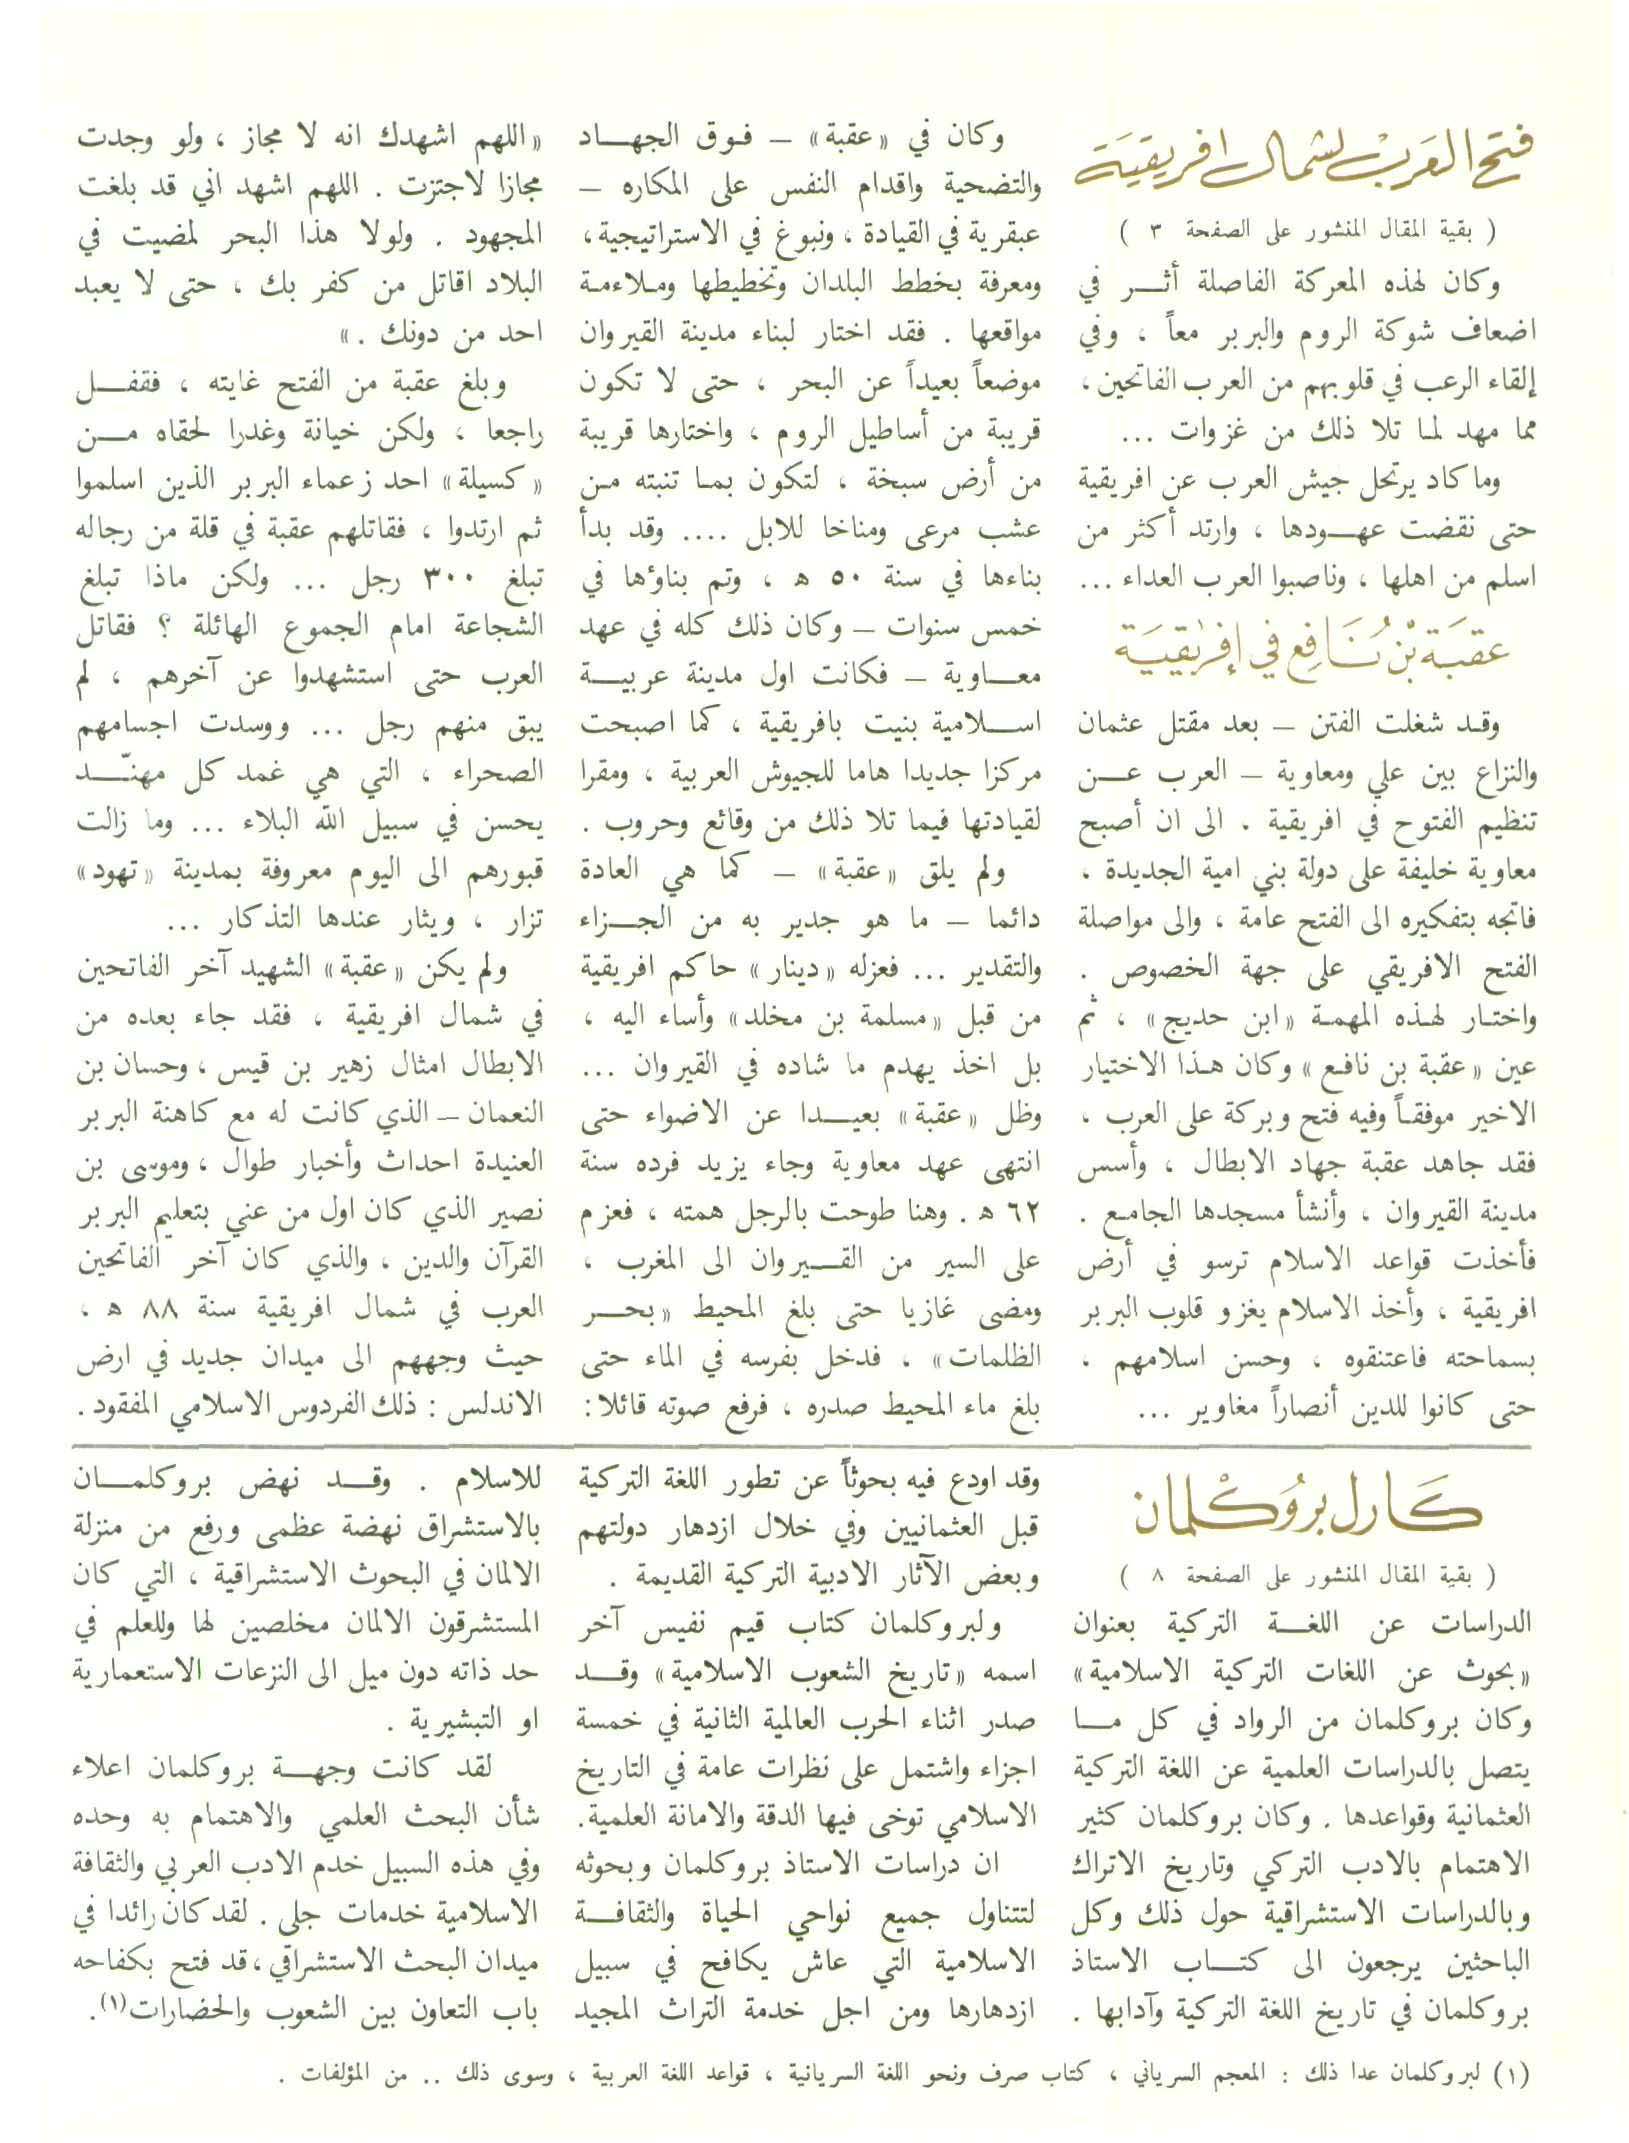 فتح العَرَبْ لشمال افريقيَة
( بقية المقال المنشور على الصفحة ٣ )
وكان لهذه المعركة الفاصلة أثـــر في
اضعاف شوكة الروم والبربر معاً ، وفي
إلقاء الرعب في قلوبهم من العرب الفاتحين ،
مما مهد لمـا تلا ذلك من غزوات ...
وما كاد يرتحل جيش العرب عن افريقية
حتى نقضت عهـــودها ، وارتد أكثر من
اسلم من اهلها ، وناصبوا العرب العداء ...
عقبَة بْن نَافِع في إفريقيَة
وقـد شغلت الفتن – بعد مقتل عثمان
والنزاع بين علي ومعاوية – العرب عـــن
تنظيم الفتوح في افريقية . الى ان أصبح
معاوية خليفة على دولة بني امية الجديدة ،
فاتجه بتفكيره الى الفتح عامة ، والى مواصلة
الفتح الافريقي على جهة الخصوص .
واختـار لهـذه المهمـة «ابن حديج» ، ثم
عين «عقبة بن نافـع» وكان هـذا الاختيار
الاخير موفقـاً وفيه فتح وبركة على العرب ،
فقد جاهد عقبة جهاد الابطال ، وأسس
مدينة القيروان ، وأنشأ مسجدها الجامـع .
فأخذت قواعد الاسلام ترسو في أرض
افريقية ، وأخذ الاسلام يغزو قلوب البربر
بسماحته فاعتنقوه ، وحسن اسلامهم ،
حتى كانوا للدين أنصاراً مغاوير ...
وكان في «عقبة» – فـوق الجهـــاد
والتضحية واقدام النفس على المكاره –
عبقرية في القيادة ، ونبوغ في الاستراتيجية ،
ومعرفة بخطط البلدان وتخطيطها ومـلاءمـة
مواقعها . فقد اختار لبناء مدينة القيروان
موضعاً بعيداً عن البحر ، حتى لا تكون
قريبة من أساطيل الروم ، واختارها قريبة
من أرض سبخة ، لتكون بمـا تنبته مـن
عشب مرعى ومناخا للابل .... وقد بدأ
بناءها في سنة ٥٠ ه ، وتم بناؤها في
خمس سنوات – وكان ذلك كله في عهد
معـــاوية – فكانت اول مدينة عربيـــة
اســـلامية بنيت بافريقية ، كما اصبحت
مركزا جديدا هاما للجيوش العربية ، ومقرا
لقيادتها فيما تلا ذلك من وقائع وحروب .
ولم يلق «عقبة» – كما هي العادة
دائما – ما هو جدير به من الجـــزاء
والتقدير ... فعزله «دينار» حاكم افريقية
من قبل «مسلمة بن مخلد» وأساء اليه ،
بل اخذ يهدم ما شاده في القيروان ...
وظل «عقبة» بعيـــدا عن الاضواء حتى
انتهى عهد معاوية وجاء يزيد فرده سنة
٦٢ ه . وهنا طوحت بالرجل همته ، فعزم
على السير من القـــيروان الى المغرب ،
ومضى غازيا حتى بلغ المحيط «بحـــر
الظلمات» ، فدخل بفرسه في الماء حتى
بلغ ماء المحيط صدره ، فرفع صوته قائلا :
«اللهم اشهدك انه لا مجاز ، ولو وجدت
مجازا لاجتزت . اللهم اشهد اني قد بلغت
المجهود . ولولا هذا البحر لمضيت في
البلاد اقاتل من كفر بك ، حتى لا يعبد
احد من دونك .»
وبلغ عقبة من الفتح غايته ، فقفـــل
راجعا ، ولكن خيانة وغدرا لحقاه مـــن
«كسيلة» احد زعماء البربر الذين اسلموا
ثم ارتدوا ، فقاتلهم عقبة في قلة من رجاله
تبلغ ٣٠٠ رجل ... ولكن ماذا تبلغ
الشجاعة امام الجموع الهائلة ؟ فقاتل
العرب حتى استشهدوا عن آخرهم ، لم
يبق منهم رجل ... ووسدت اجسامهم
الصحراء ، التي هي غمد كل مهنّـــد
يحسن في سبيل الله البلاء ... وما زالت
قبورهم الى اليوم معروفة بمدينة «تهود»
تزار ، ويثار عندها التذكار ...
ولم يكن «عقبة» الشهيد آخر الفاتحين
في شمال افريقية ، فقد جاء بعده من
الابطال امثال زهير بن قيس ، وحسان بن
النعمان – الذي كانت له مع كاهنة البربر
العنيدة احداث وأخبار طوال ، وموسى بن
نصير الذي كان اول من عني بتعليم البربر
القرآن والدين ، والذي كان آخر الفاتحين
العرب في شمال افريقية سنة ٨٨ ه ،
حيث وجههم الى ميدان جديد في ارض
الاندلس : ذلك الفردوس الاسلامي المفقود .
كَارل بروُكْلمان
( بقية المقال المنشور على الصفحة ٨ )
الدراسات عن اللغـــة التركية بعنوان
«بحوث عن اللغات التركية الاسلامية»
وكان بروكلمان من الرواد في كل مـــا
يتصل بالدراسات العلمية عن اللغة التركية
العثمانية وقواعدها . وكان بروكلمان كثير
الاهتمام بالادب التركي وتاريخ الاتراك
وبالدراسات الاستشراقية حول ذلك وكل
الباحثين يرجعون الى كتـــاب الاستاذ
بروكلمان في تاريخ اللغة التركية وآدابها .
وقد اودع فيه بحوثاً عن تطور اللغة التركية
قبل العثمانيين وفي خلال ازدهار دولتهم
وبعض الآثار الادبية التركية القديمة .
ولبروكلمان كتاب قيم نفيس آخر
اسمه «تاريخ الشعوب الاسلامية» وقـــد
صدر اثناء الحرب العالمية الثانية في خمسة
اجزاء واشتمل على نظرات عامة في التاريخ
الاسلامي توخى فيها الدقة والامانة العلمية .
ان دراسات الاستاذ بروكلمان وبحوثه
لتتناول جميع نواحي الحياة والثقافـــة
الاسلامية التي عاش يكافح في سبيل
ازدهارها ومن اجل خدمة التراث المجيد
للاسلام . وقـــد نهض بروكلمـــان
بالاستشراق نهضة عظمى ورفع من منزلة
الالمان في البحوث الاستشراقية ، التي كان
المستشرقون الالمان مخلصين لها وللعلم في
حد ذاته دون ميل الى النزعات الاستعمارية
او التبشيرية .
لقد كانت وجهـــة بروكلمان اعلاء
شأن البحث العلمي والاهتمام به وحده
وفي هذه السبيل خدم الادب العربي والثقافة
الاسلامية خدمات جلى . لقد كان رائدا في
ميدان البحث الاستشراقي ، قد فتح بكفاحه
باب التعاون بين الشعوب والحضارات(١) .
(١) لبروكلمان عدا ذلك : المعجم السرياني ، كتاب صرف ونحو اللغة السريانية ، قواعد اللغة العربية ، وسوى ذلك .. من المؤلفات .